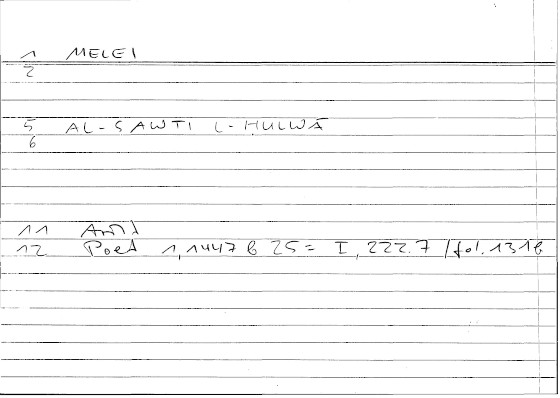 1 MELEI
2
5 AL-SAWTI L-HULWĀ
6
11
12 Poet 1,1447 b 25 = I, 222.7 / fol. 131b